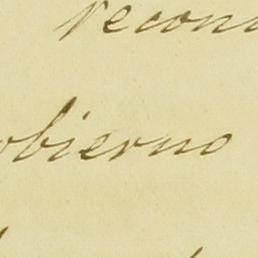 recon
obierno